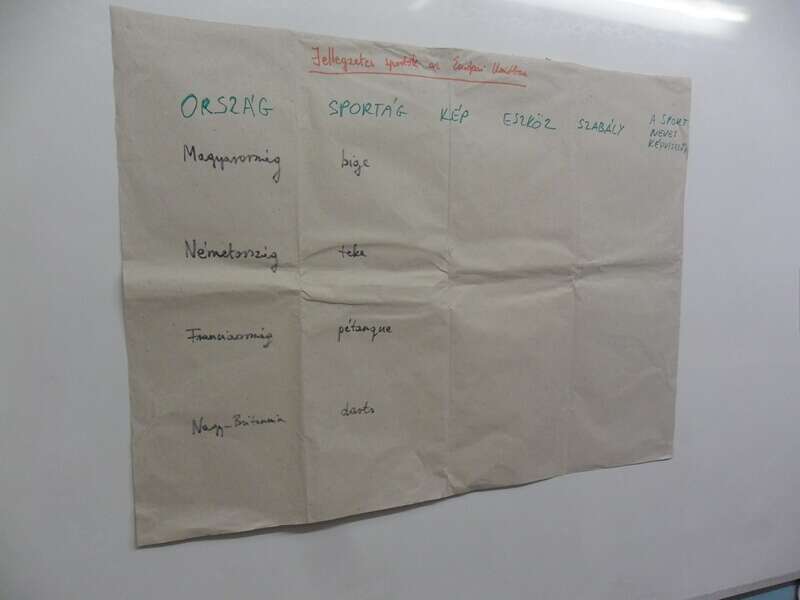 Jellegzetes sportok az Európai Unióban
ORSZÁG SPORTÁG KÉP ESZKÖZ SZABÁLY A SPORT NEVES KÉPVISELŐJE
Magyarország bige
Németország teke
Franciaország pétanque
Nagy-Britannia darts